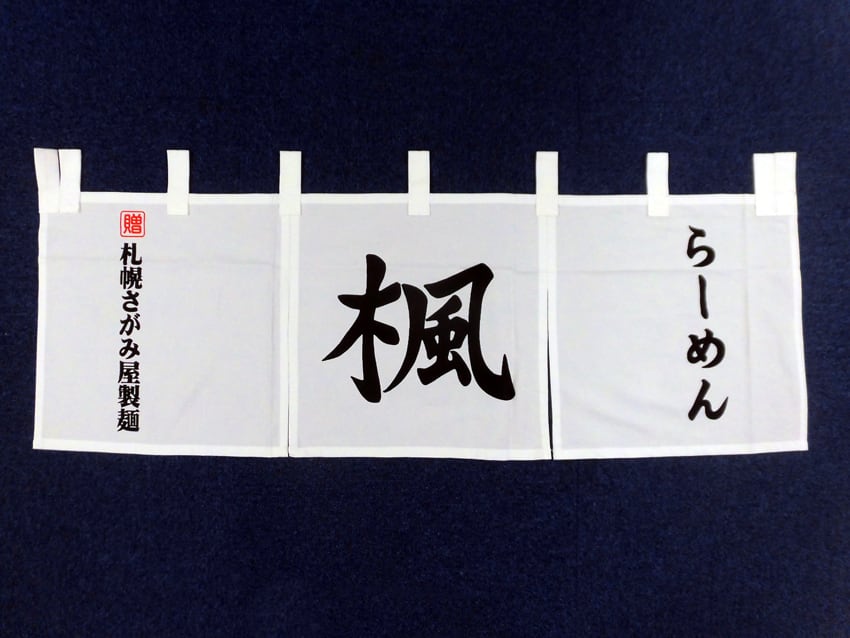 らーめん
楓
贈
札幌さがみ屋製麺